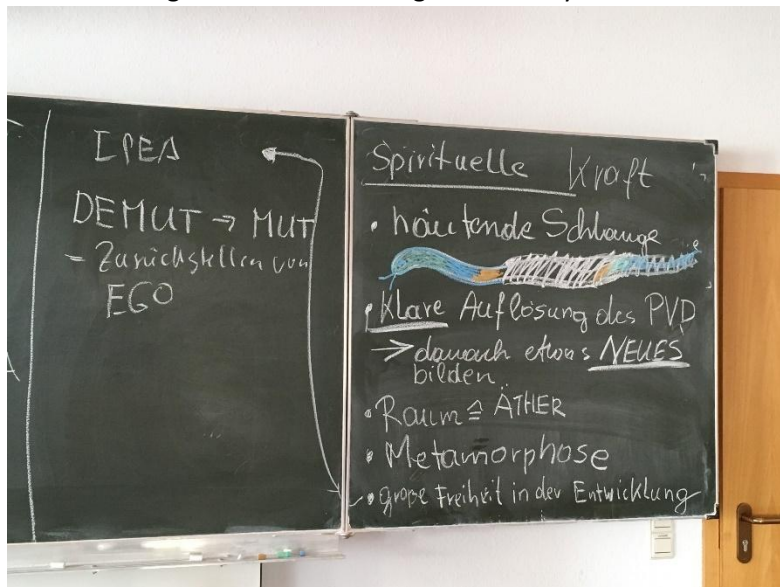 IDEA
DEMUT → MUT
- Zurückstellen von
EGO
Spirituelle Kraft
• häutende Schlange
• Klare Auflösung des PVD
→ danach etwas NEUES
bilden
• Raum ≙ ÄTHER
• Metamorphose
• große Freiheit in der Entwicklung